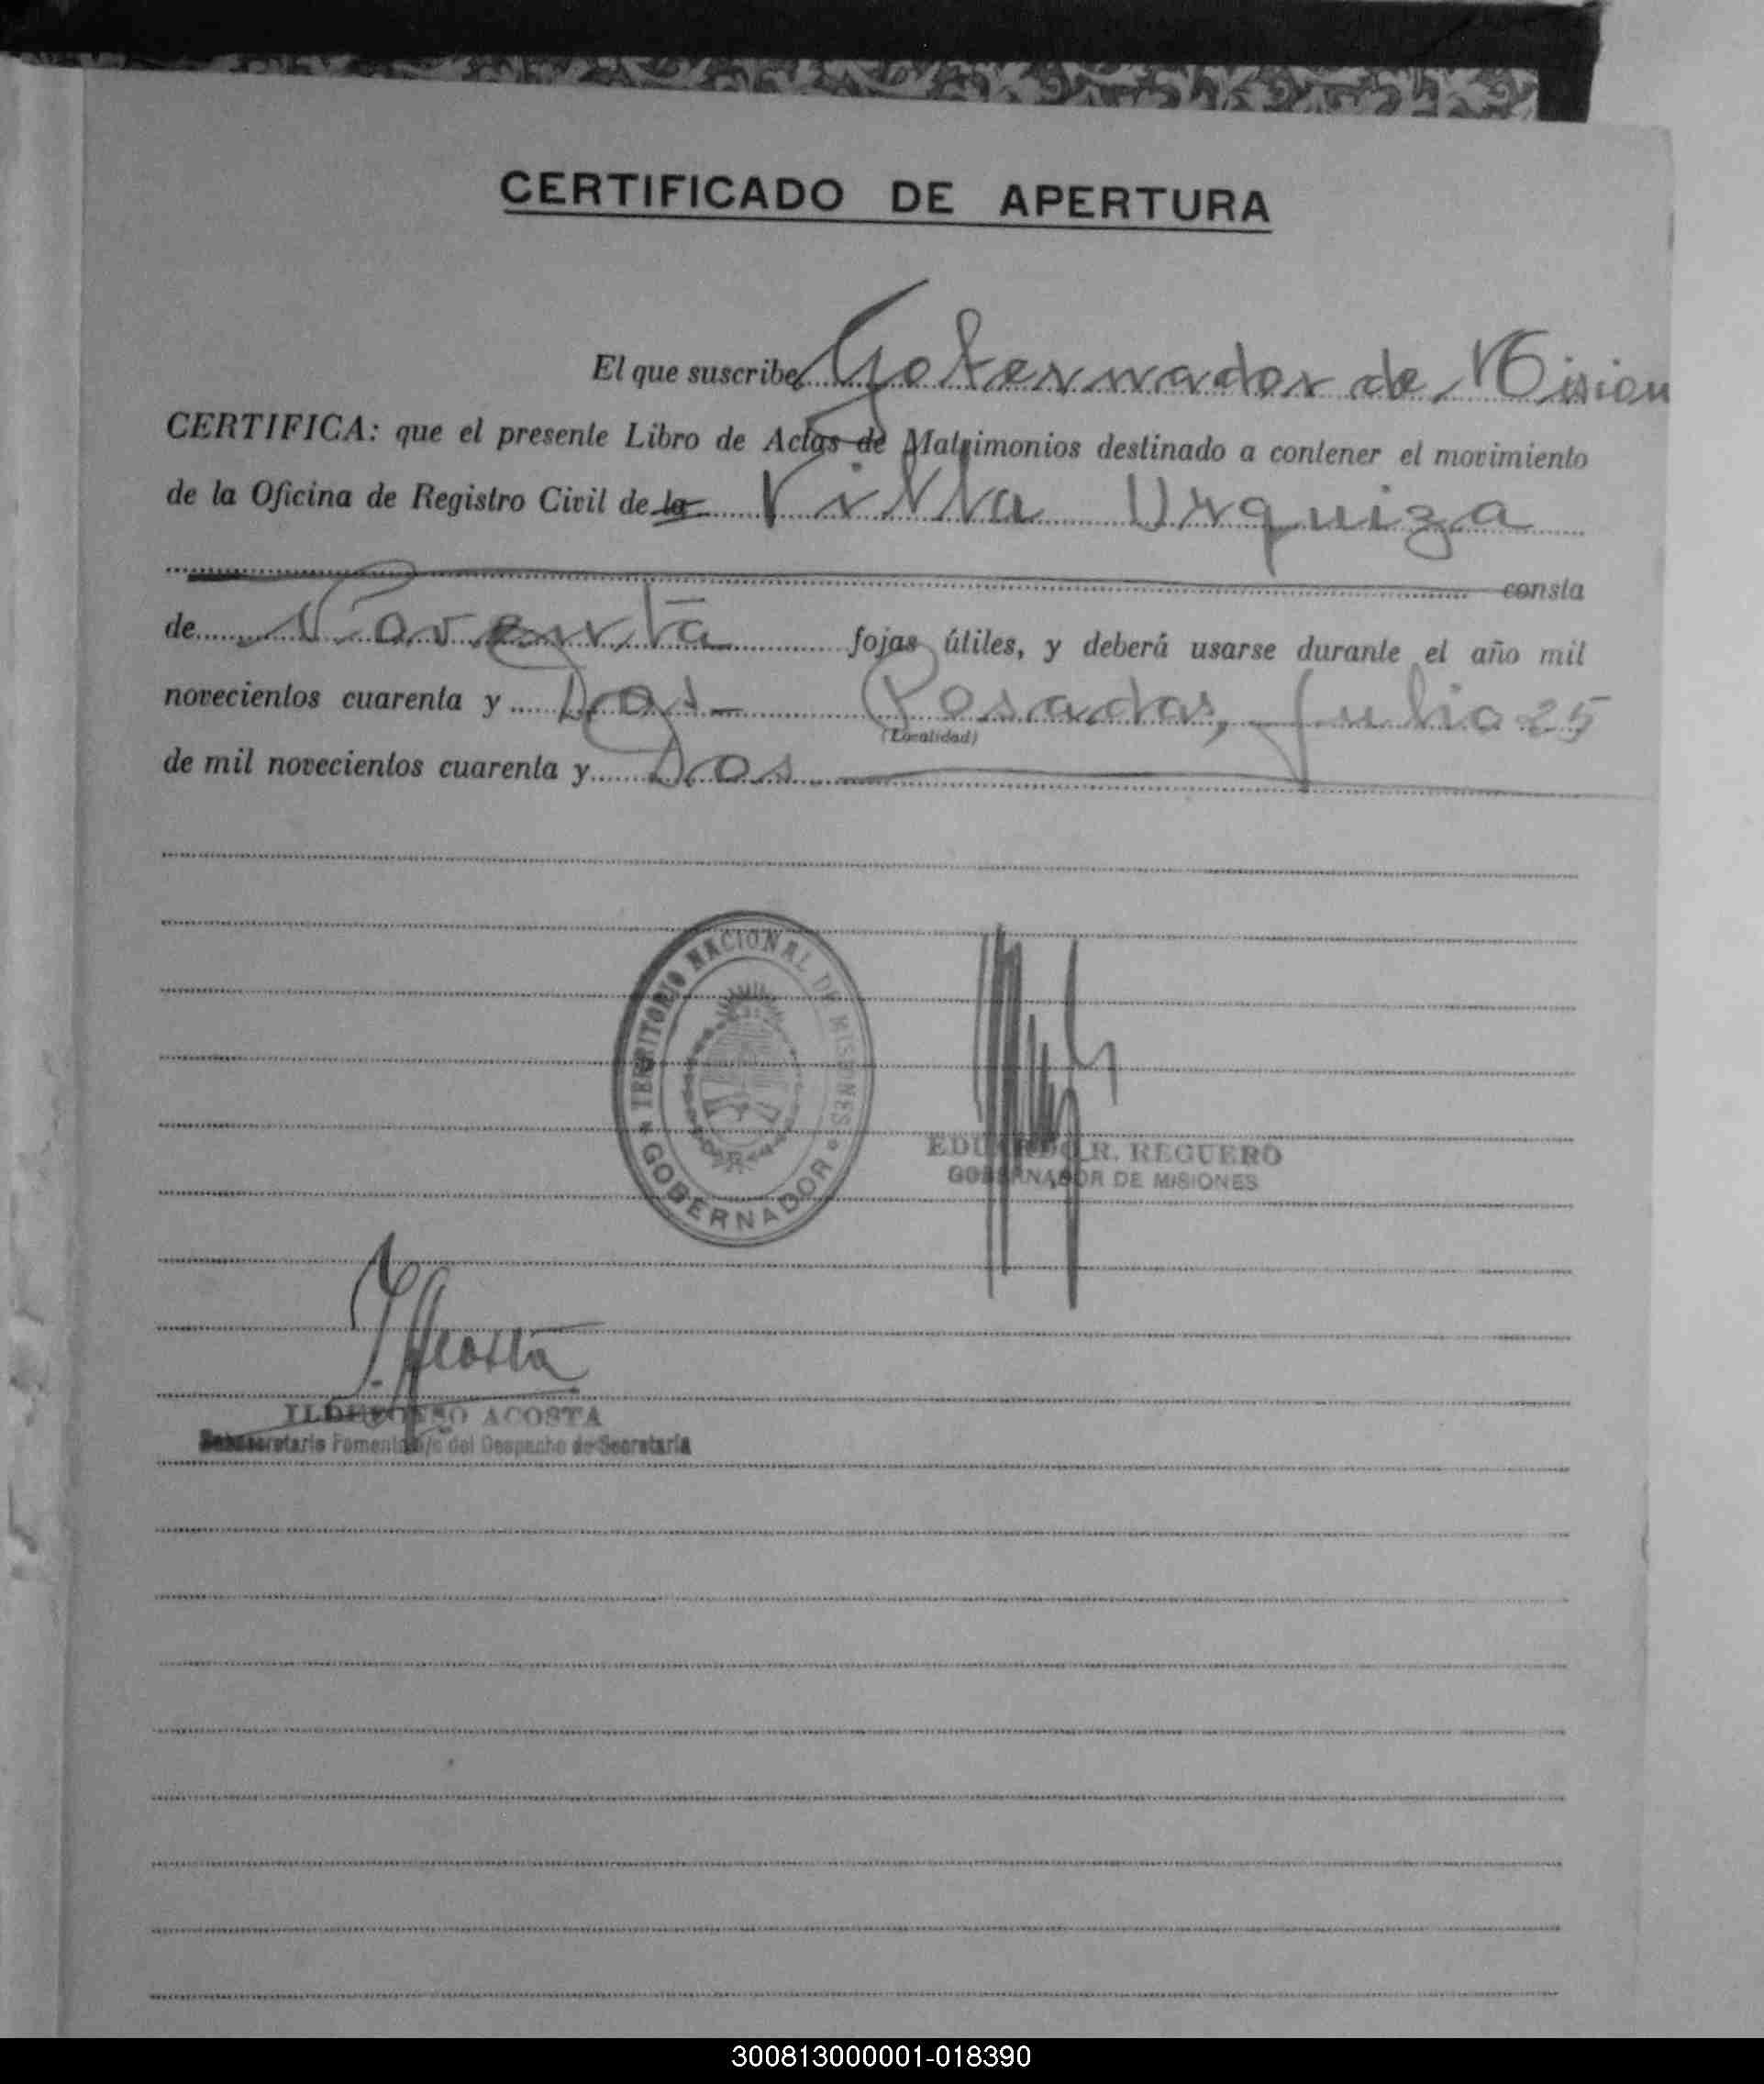 CERTIFICADO DE APERTURA
El que suscribe Gobernador de Mision
CERTIFICA: que el presente Libro de Actas de Matrimonios destinado a contener el movimiento
de la Oficina de Registro Civil de la Villa Urquiza
consta
de Noventa fojas útiles, y deberá usarse durante el año mil
novecientos cuarenta y Dos Posadas, Julio 25
(Localidad)
de mil novecientos cuarenta y Dos
TERRITORIO NACIONAL DE MISIONES
GOBERNADOR
EDUARDO R. REGUERO
GOBERNADOR DE MISIONES
I. Acosta
ILDEFONSO ACOSTA
Subsecretario Fomento a/c del Despacho de Secretaría
300813000001-018390